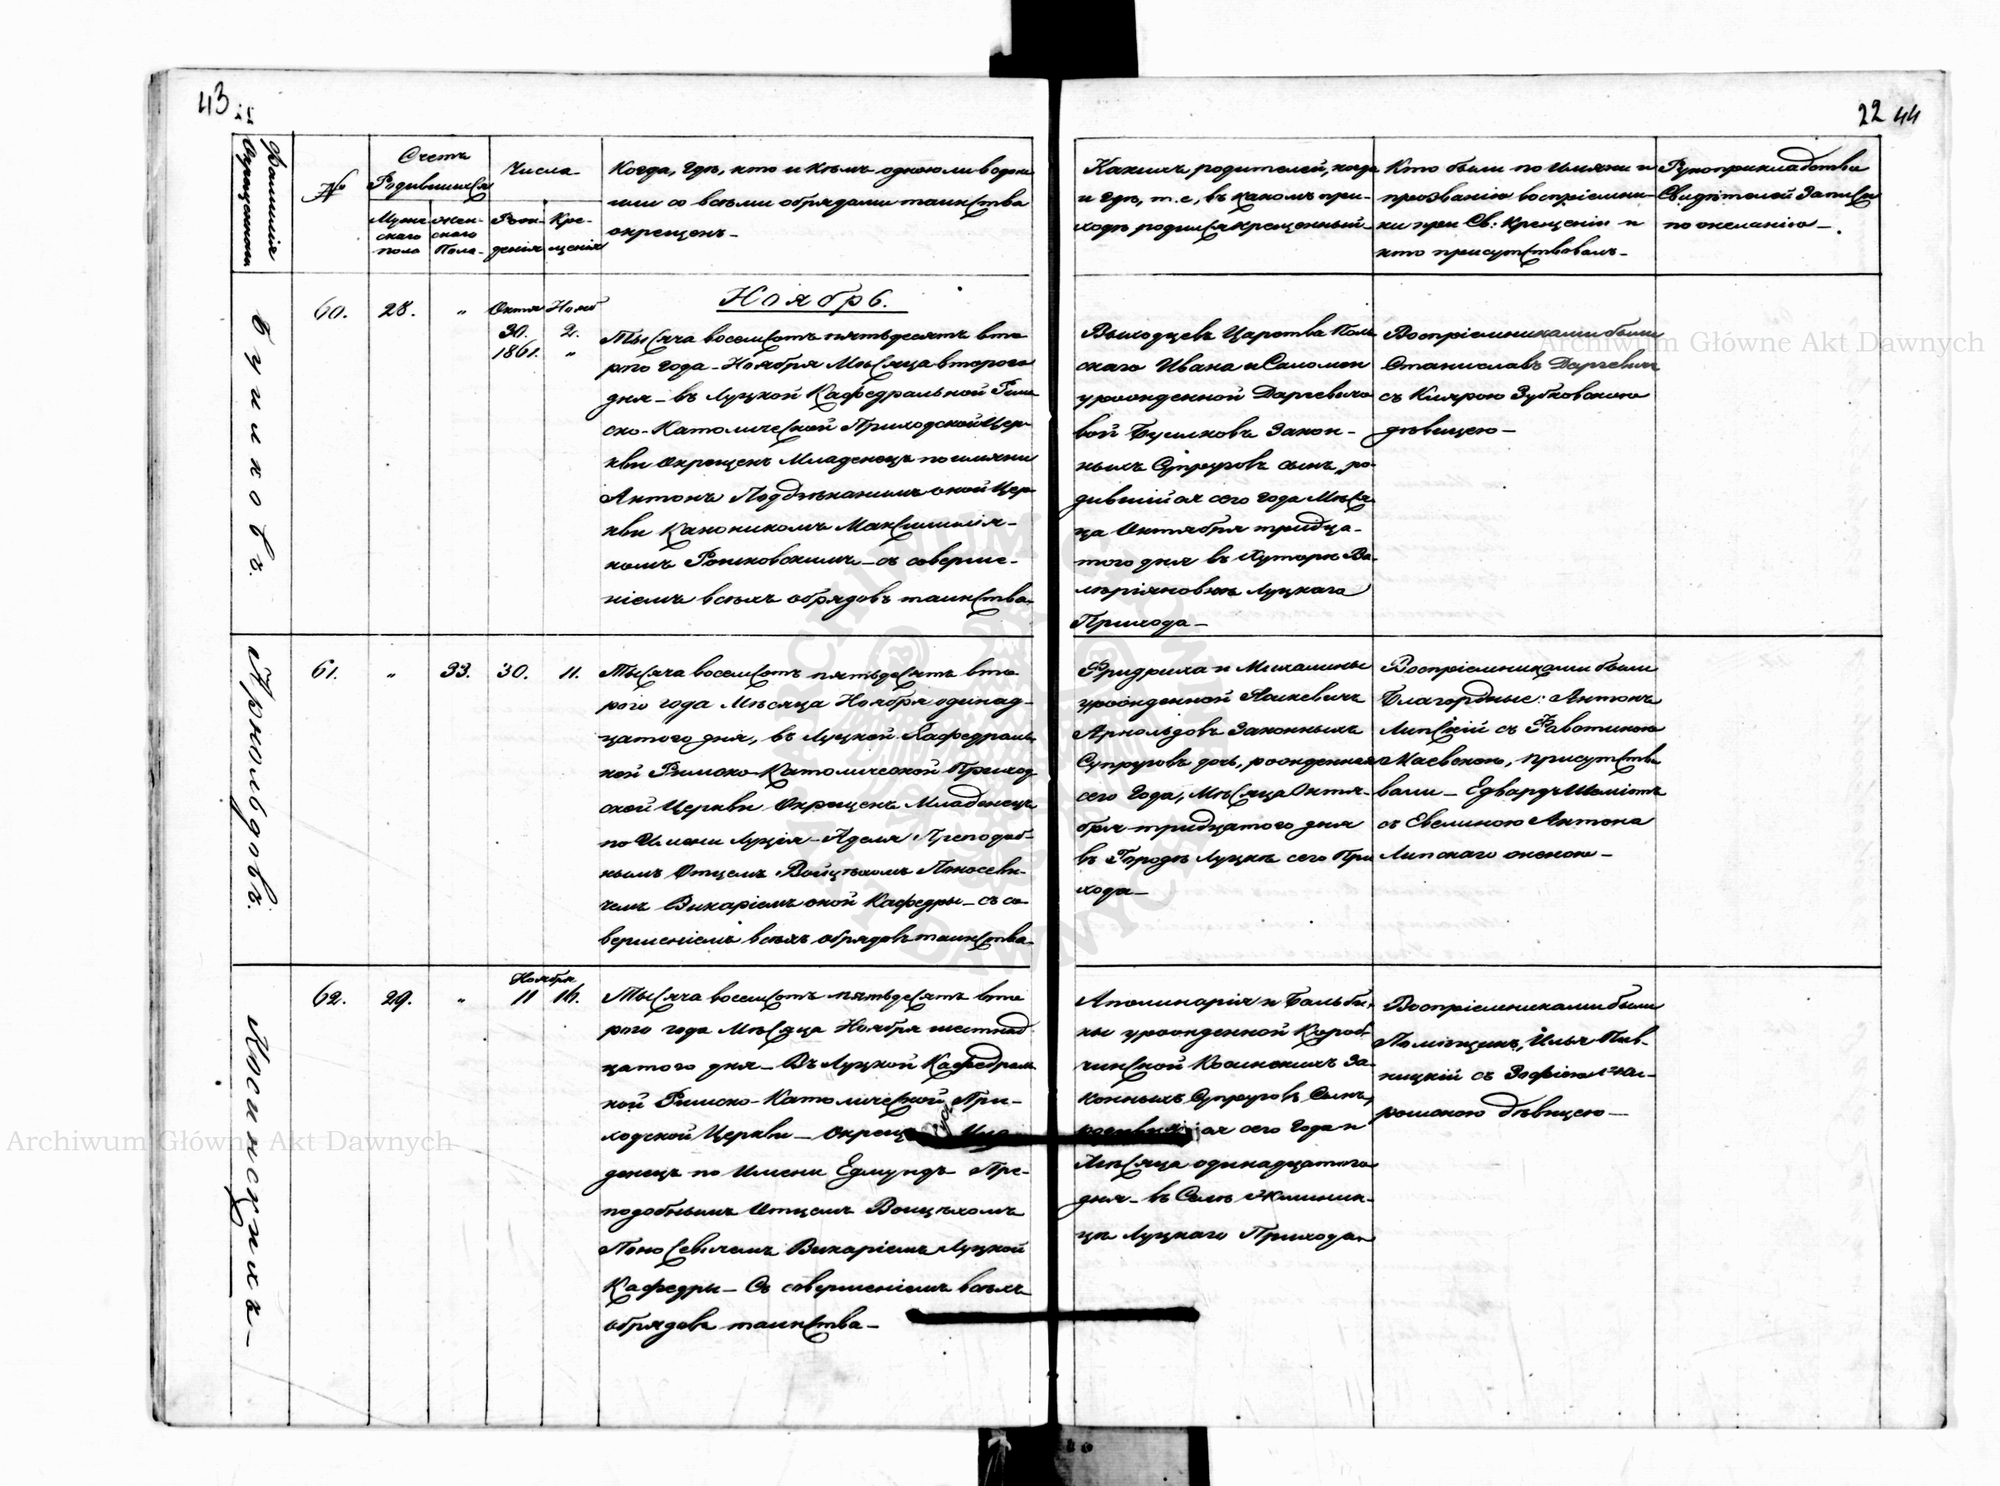 43
22 44
Фамилія Окрещеннаго
№
Счетъ
Родившихся
Муже-
скаго
пола
Жен-
скаго
Пола-
Числа
Рож-
денія
Кре-
щенія
Когда, гдѣ, кто и кѣмъ одною ли водою
или со всѣми обрядами таинства
окрещенъ-
Какихъ родителей, когда
и гдѣ, т.е, въ какомъ при-
ходѣ родился крещенный-
Кто были по Имяни и
прозванію воспріемни-
ки при Св: Крещеніи и
кто присутствовалъ-
Рукоприкладства
Свидѣтелей Записи
по желанію-
60.
28.
"
Октяб
30.
1861.
Нояб
2.
"
Ноябрь.
Тысяча восемсотъ пятьдесятъ вто
раго года- Ноября Мѣсяца втораго
дня- въ Луцкой Кафедральной Рим
ско-Католической Приходской Цер-
кви Окрещенъ Младенецъ по имяни
Антонъ Подъдѣканимъ оной Цер-
кви Каноникомъ Максимилія-
номъ -съ соверше-
ніемъ всѣхъ обрядовъ таинства.
Выходцевъ Царства Поль
скаго Ивана и Саломеи
урожденной Даргевичо
вой Бусилковъ Закон-
ныхъ Супруговъ сынъ, ро-
дившійся сего года Мѣся
ца Октября тридца-
того дня въ Хуторѣ Ва-
лѣріяновкѣ Луцкаго
Прихода-
Воспріемниками были
Станиславъ Даргевичъ
съ Клярою Зубковскою
дѣвицею-
Арнольдовъ.
61.
"
33.
30.
11.
Тысяча восемсотъ пятьдесятъ вто
раго года Мѣсяца Ноября одинад-
цатого дня, въ Луцкой Кафедраль
ной Римско-Католической Приход
ской Церкви Окрещенъ Младенецъ
по Имени Луція-Аделя Преподоб-
нымъ Отцемъ Войцѣхомъ Поносеви-
чемъ Викаріемъ оной Кафедры-съ со
вершеніемъ всѣхъ обрядовъ таинства
Фридриха и Михалины
урожденной Яцкевичъ
Арнольдовъ Законныхъ
Супруговъ дочь, рожденная
сего Года, Мѣсяца Октя-
бря тридцатого дня
въ Городѣ Луцкѣ сего При
хода-
Воспріемниками были
Благородные: Антонъ
Липскій съ
Маевскою, присутство
вали- Едвардъ
съ Евелиною Антона
Липскаго женою-
Косинскихъ-
62.
29.
"
Ноября
11
16.
Тысяча восемсотъ пятьдесятъ вто
раго года Мѣсяца Ноября шестнад
цатого дня- Въ Луцкой Кафедраль
ной Римско-Католической При-
ходской Церкви- Окрещенъ Мла
денецъ по Имени Едмундъ Пре-
подобнымъ Отцемъ Войцѣхомъ
Поносевичемъ Викаріемъ Луцкой
Кафедры- Съ совершеніемъ всѣхъ
обрядовъ таинства-
Аполинарія и Бальби-
ны урожденной Короб-
чинской Косинскихъ За-
конныхъ Супруговъ Сынъ,
сего Года и
Мѣсяца одинадцатого
дня- въ Селѣ
цѣ Луцкаго Прихода-
Воспріемниками были
Помѣщикъ, Илья Пав-
ницкій съ Зофіею
дѣвицею-
Archiwum Główne Akt Dawnych
Archiwum Główne Akt Dawnych